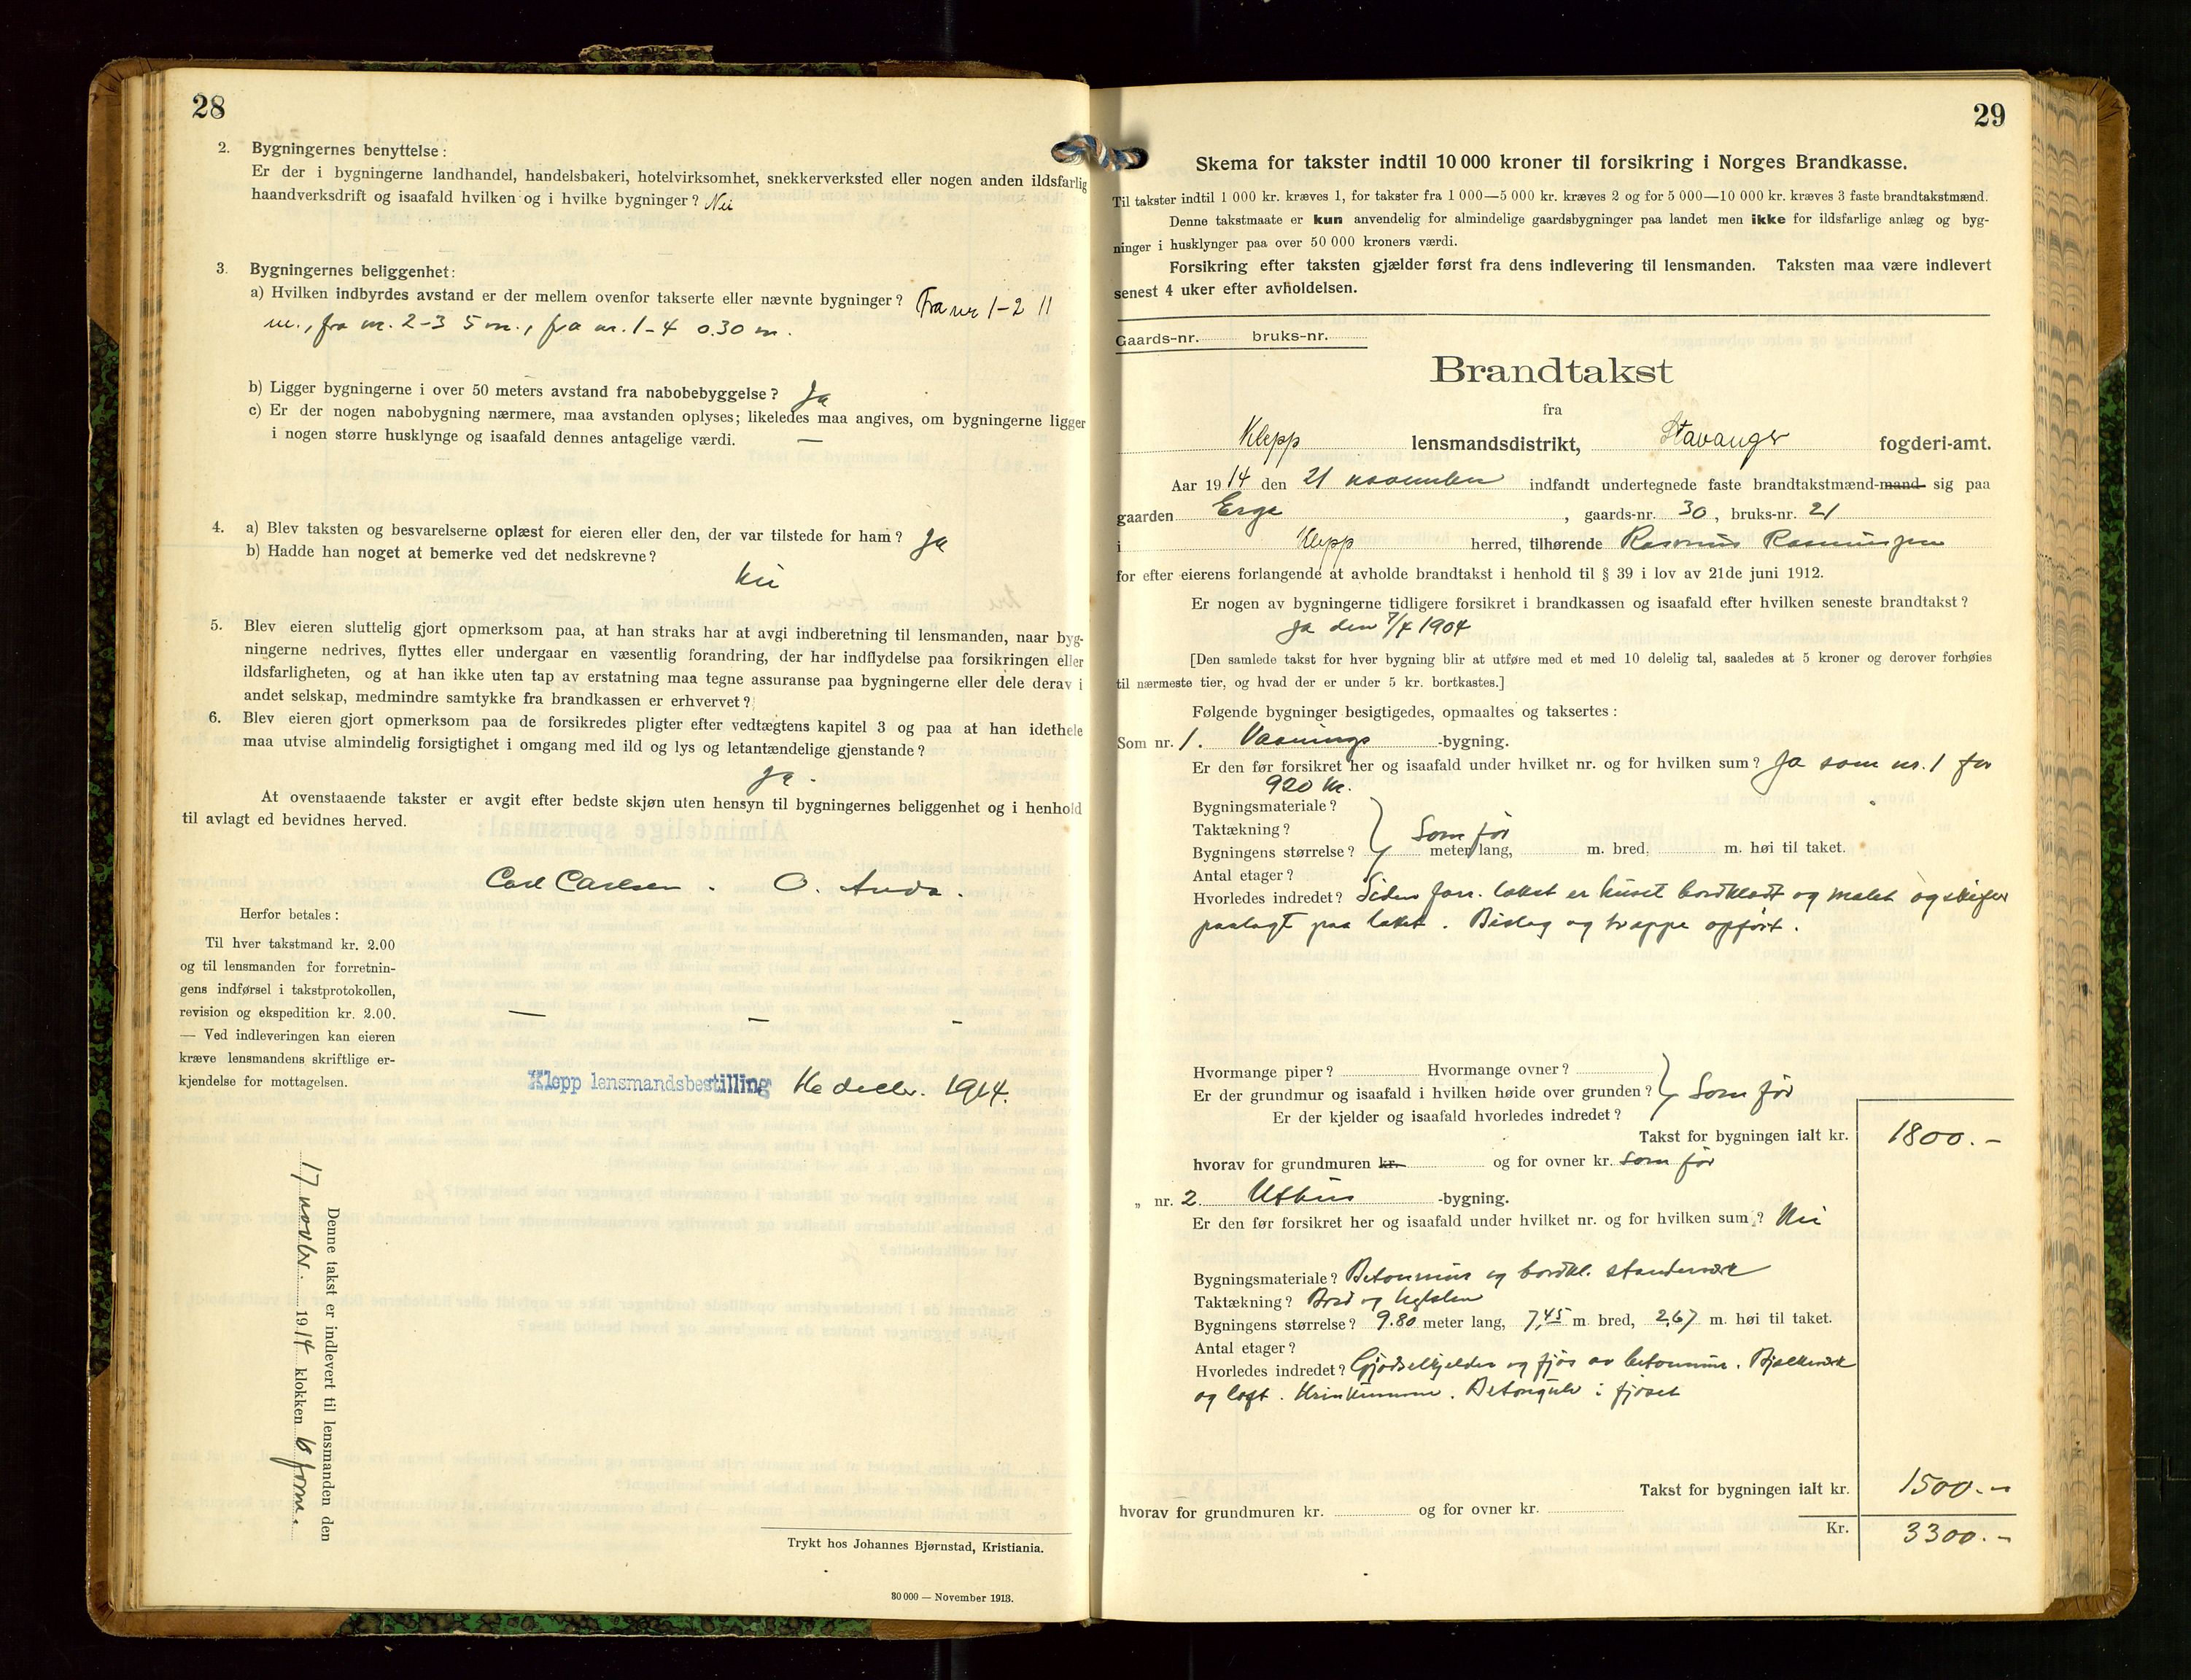 28
2. Bygningernes benyttelse:
Er der i bygningerne landhandel, handelsbakeri, hotelvirksomhet, snekkerverksted eller nogen anden ildsfarlig
haandverksdrift og isaafald hvilken og i hvilke bygninger? Nei
3. Bygningernes beliggenhet:
a) Hvilken indbyrdes avstand er der mellem ovenfor takserte eller nævnte bygninger? Fra nr 1-2 11
m., fra nr. 2-3 5 m., fra nr. 1-4 0.30 m.
b) Ligger bygningerne i over 50 meters avstand fra nabobebyggelse? Ja
c) Er der nogen nabobygning nærmere, maa avstanden oplyses; likeledes maa angives, om bygningerne ligger
i nogen større husklynge og isaafald dennes antagelige værdi. —
4. a) Blev taksten og besvarelserne oplæst for eieren eller den, der var tilstede for ham? Ja
b) Hadde han noget at bemerke ved det nedskrevne?
Nei
5. Blev eieren sluttelig gjort opmerksom paa, at han straks har at avgi indberetning til lensmanden, naar byg-
ningerne nedrives, flyttes eller undergaar en væsentlig forandring, der har indflydelse paa forsikringen eller
ildsfarligheten, og at han ikke uten tap av erstatning maa tegne assuranse paa bygningerne eller dele derav i
andet selskap, medmindre samtykke fra brandkassen er erhvervet?
6. Blev eieren gjort opmerksom paa de forsikredes pligter efter vedtægtens kapitel 3 og paa at han idethele
maa utvise almindelig forsigtighet i omgang med ild og lys og letantændelige gjenstande?
Ja.
At ovenstaaende takster er avgit efter bedste skjøn uten hensyn til bygningernes beliggenhet og i henhold
til avlagt ed bevidnes herved.
Carl Carlsen. O. Anda.
Herfor betales:
Til hver takstmand kr. 2.00
og til lensmanden for forretnin-
gens indførsel i takstprotokollen,
revision og ekspedition kr. 2.00.
— Ved indleveringen kan eieren
kræve lensmandens skriftlige er-
kjendelse for mottagelsen.
— — -
Klepp lensmandsbestilling 16 decbr. 1914.
Denne takst er indlevert til lensmanden den
17 novbr. 1914 klokken 10 form.
Trykt hos Johannes Bjørnstad, Kristiania.
30 000 — November 1913.
29
Skema for takster indtil 10 000 kroner til forsikring i Norges Brandkasse.
Til takster indtil 1 000 kr. kræves 1, for takster fra 1 000—5 000 kr. kræves 2 og for 5 000—10 000 kr. kræves 3 faste brandtakstmænd.
Denne takstmaate er kun anvendelig for almindelige gaardsbygninger paa landet men ikke for ildsfarlige anlæg og byg-
ninger i husklynger paa over 50 000 kroners værdi.
Forsikring efter taksten gjælder først fra dens indlevering til lensmanden. Taksten maa være indlevert
senest 4 uker efter avholdelsen.
Gaards-nr. bruks-nr.
Brandtakst
fra
Klepp lensmandsdistrikt, Stavanger fogderi-amt.
Aar 1914 den 21 november indfandt undertegnede faste brandtakstmænd-mand sig paa
gaarden Erge, gaards-nr. 30, bruks-nr. 21
i Klepp herred, tilhørende Rasmus Rasmussen
for efter eierens forlangende at avholde brandtakst i henhold til § 39 i lov av 21de juni 1912.
Er nogen av bygningerne tidligere forsikret i brandkassen og isaafald efter hvilken seneste brandtakst?
Ja den 7/4 1904
[Den samlede takst for hver bygning blir at utføre med et med 10 delelig tal, saaledes at 5 kroner og derover forhøies
til nærmeste tier, og hvad der er under 5 kr. bortkastes.]
Følgende bygninger besigtigedes, opmaaltes og taksertes:
Som nr. 1. Vaanings -bygning.
Er den før forsikret her og isaafald under hvilket nr. og for hvilken sum? Ja som nr. 1 for
920 kr.
Bygningsmateriale?
Taktækning? Som før
Bygningens størrelse? meter lang, m. bred, m. høi til taket.
Antal etager?
Hvorledes indredet? Siden forr. takst er huset bordklædt og malet og skifer
paalagt paa taket. Bislag og trappe opført.
Hvormange piper? Hvormange ovner?
Er der grundmur og isaafald i hvilken høide over grunden? Som før
Er der kjelder og isaafald hvorledes indredet?
Takst for bygningen ialt kr. 1800.-
hvorav for grundmuren kr. og for ovner kr. som før
„ nr. 2. Uthus -bygning.
Er den før forsikret her og isaafald under hvilket nr. og for hvilken sum? Nei
Bygningsmateriale? Betonmur og bordkl. stenderverk
Taktækning? Bord og teglsten
Bygningens størrelse? 9.80 meter lang, 7,45 m. bred, 2,67 m. høi til taket.
Antal etager?
Hvorledes indredet? Gjødselkjelder og fjøs av betonmur. Bjælkeværk
og loft. Urinkumme. Betongulv i fjøset
Takst for bygningen ialt kr. 1500.-
hvorav for grundmuren kr. og for ovner kr.
Kr. 3300.-